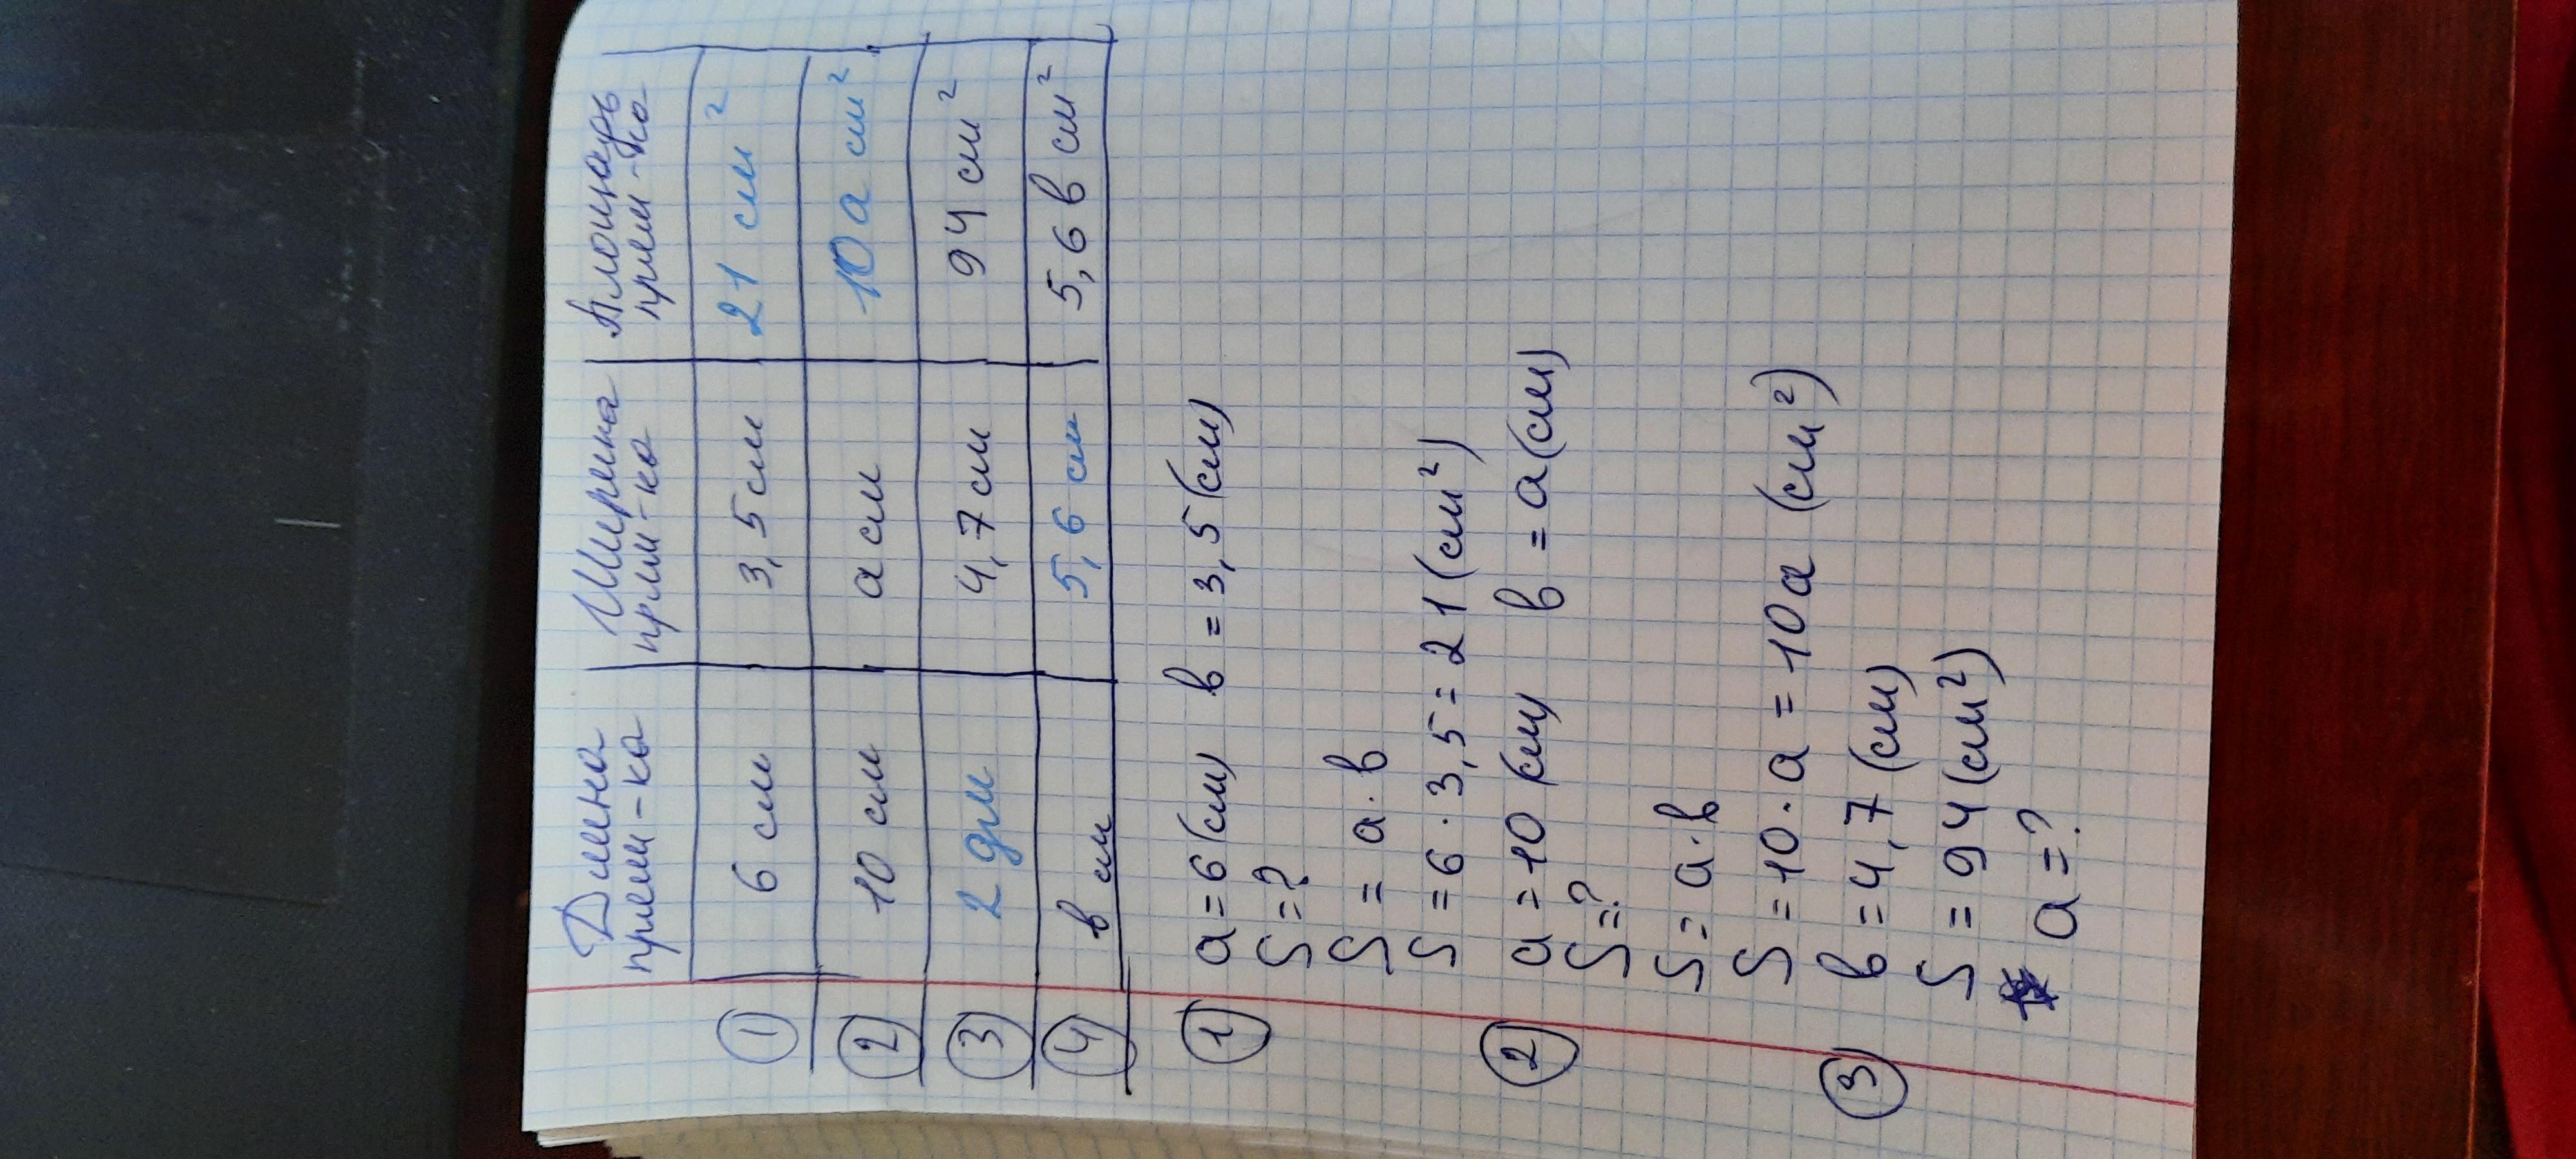 Длина Ширина Площадь
прям-ка прям-ка прям-ка
① 6 см 3,5 см 21 см²
② 10 см а см 10 а см²
③ 2 дм 4,7 см 94 см²
④ в см 5,6 см 5,6 в см²
① а = 6 (см) в = 3,5 (см)
S = ?
S = а · в
S = 6 · 3,5 = 21 (см²)
② а = 10 (см) в = а (см)
S = ?
S = а · в
S = 10 · а = 10 а (см²)
③ в = 4,7 (см)
S = 94 (см²)
а = ?